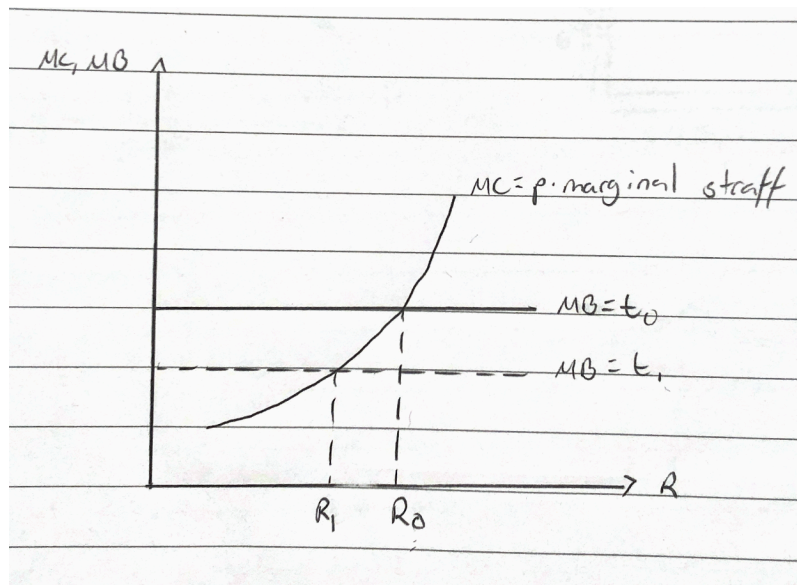 MC, MB
MC = p·marginal straff
MB = t₀
MB = t₁
R
R₁ R₀